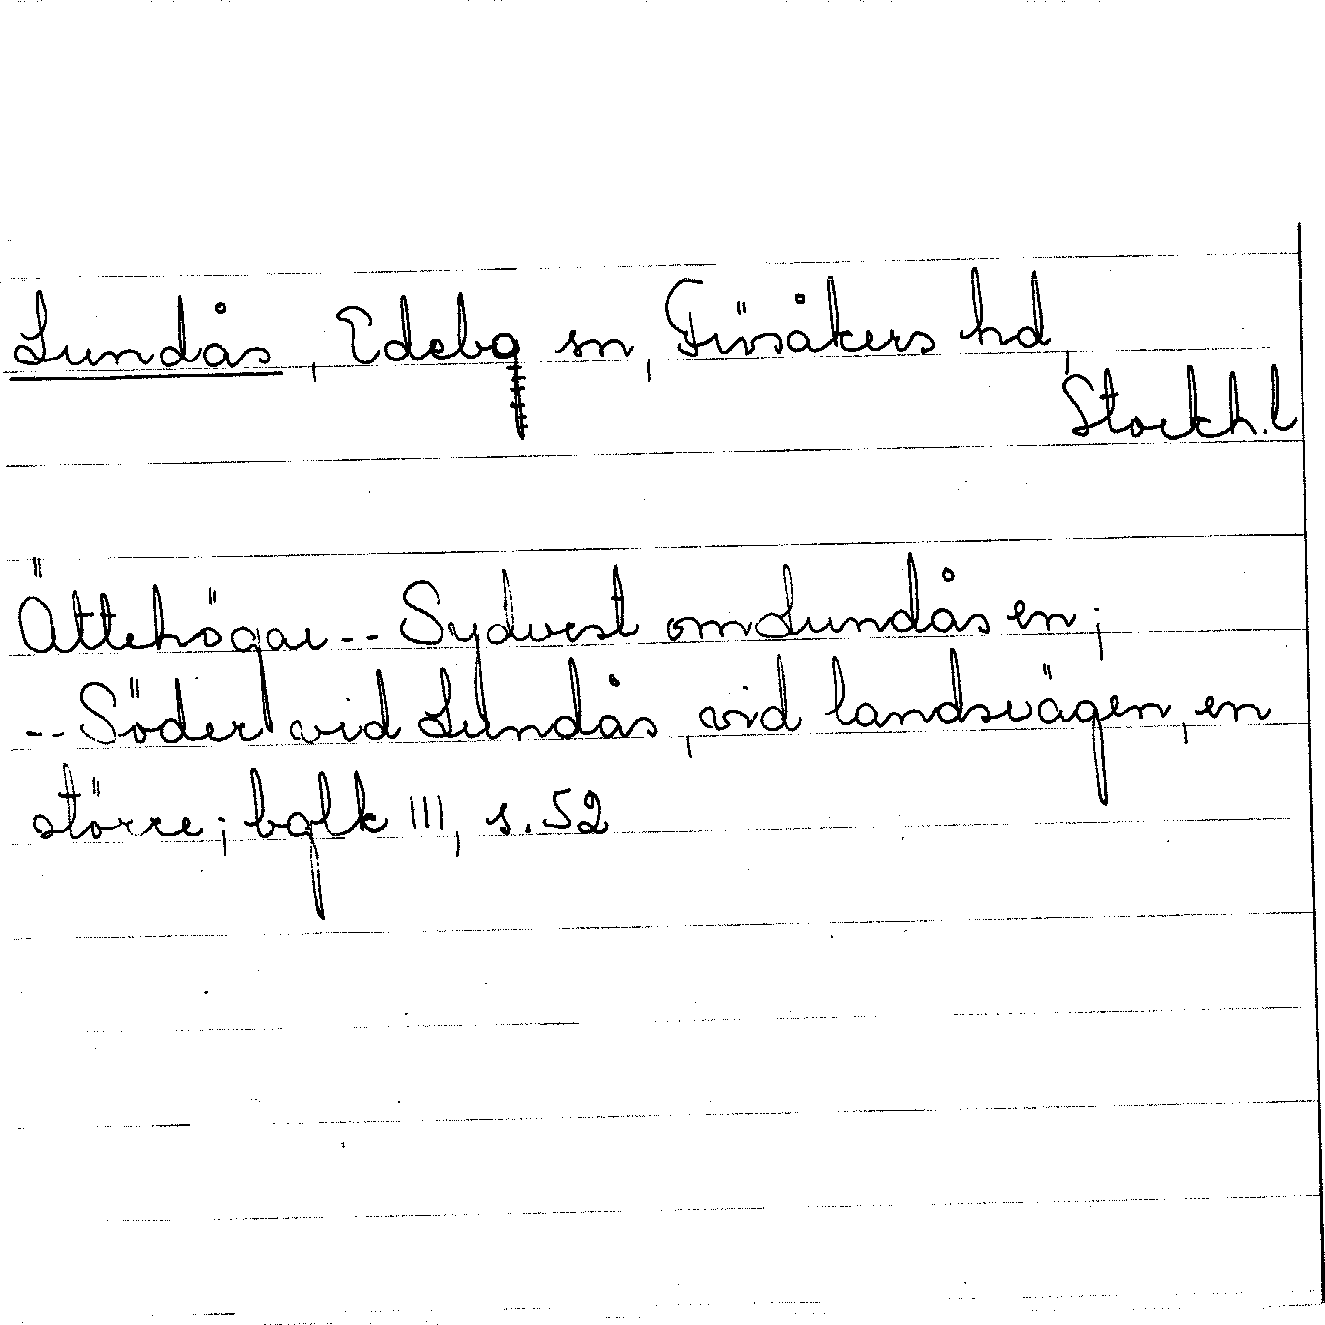 Lundås, Edebo sn, Frösåkers hd,
Stockh.l
Ättehögar -- Sydvest om Lundåsen;
-- Söder vid Lundås, vid landsvägen, en
större; bglk III, s. 52